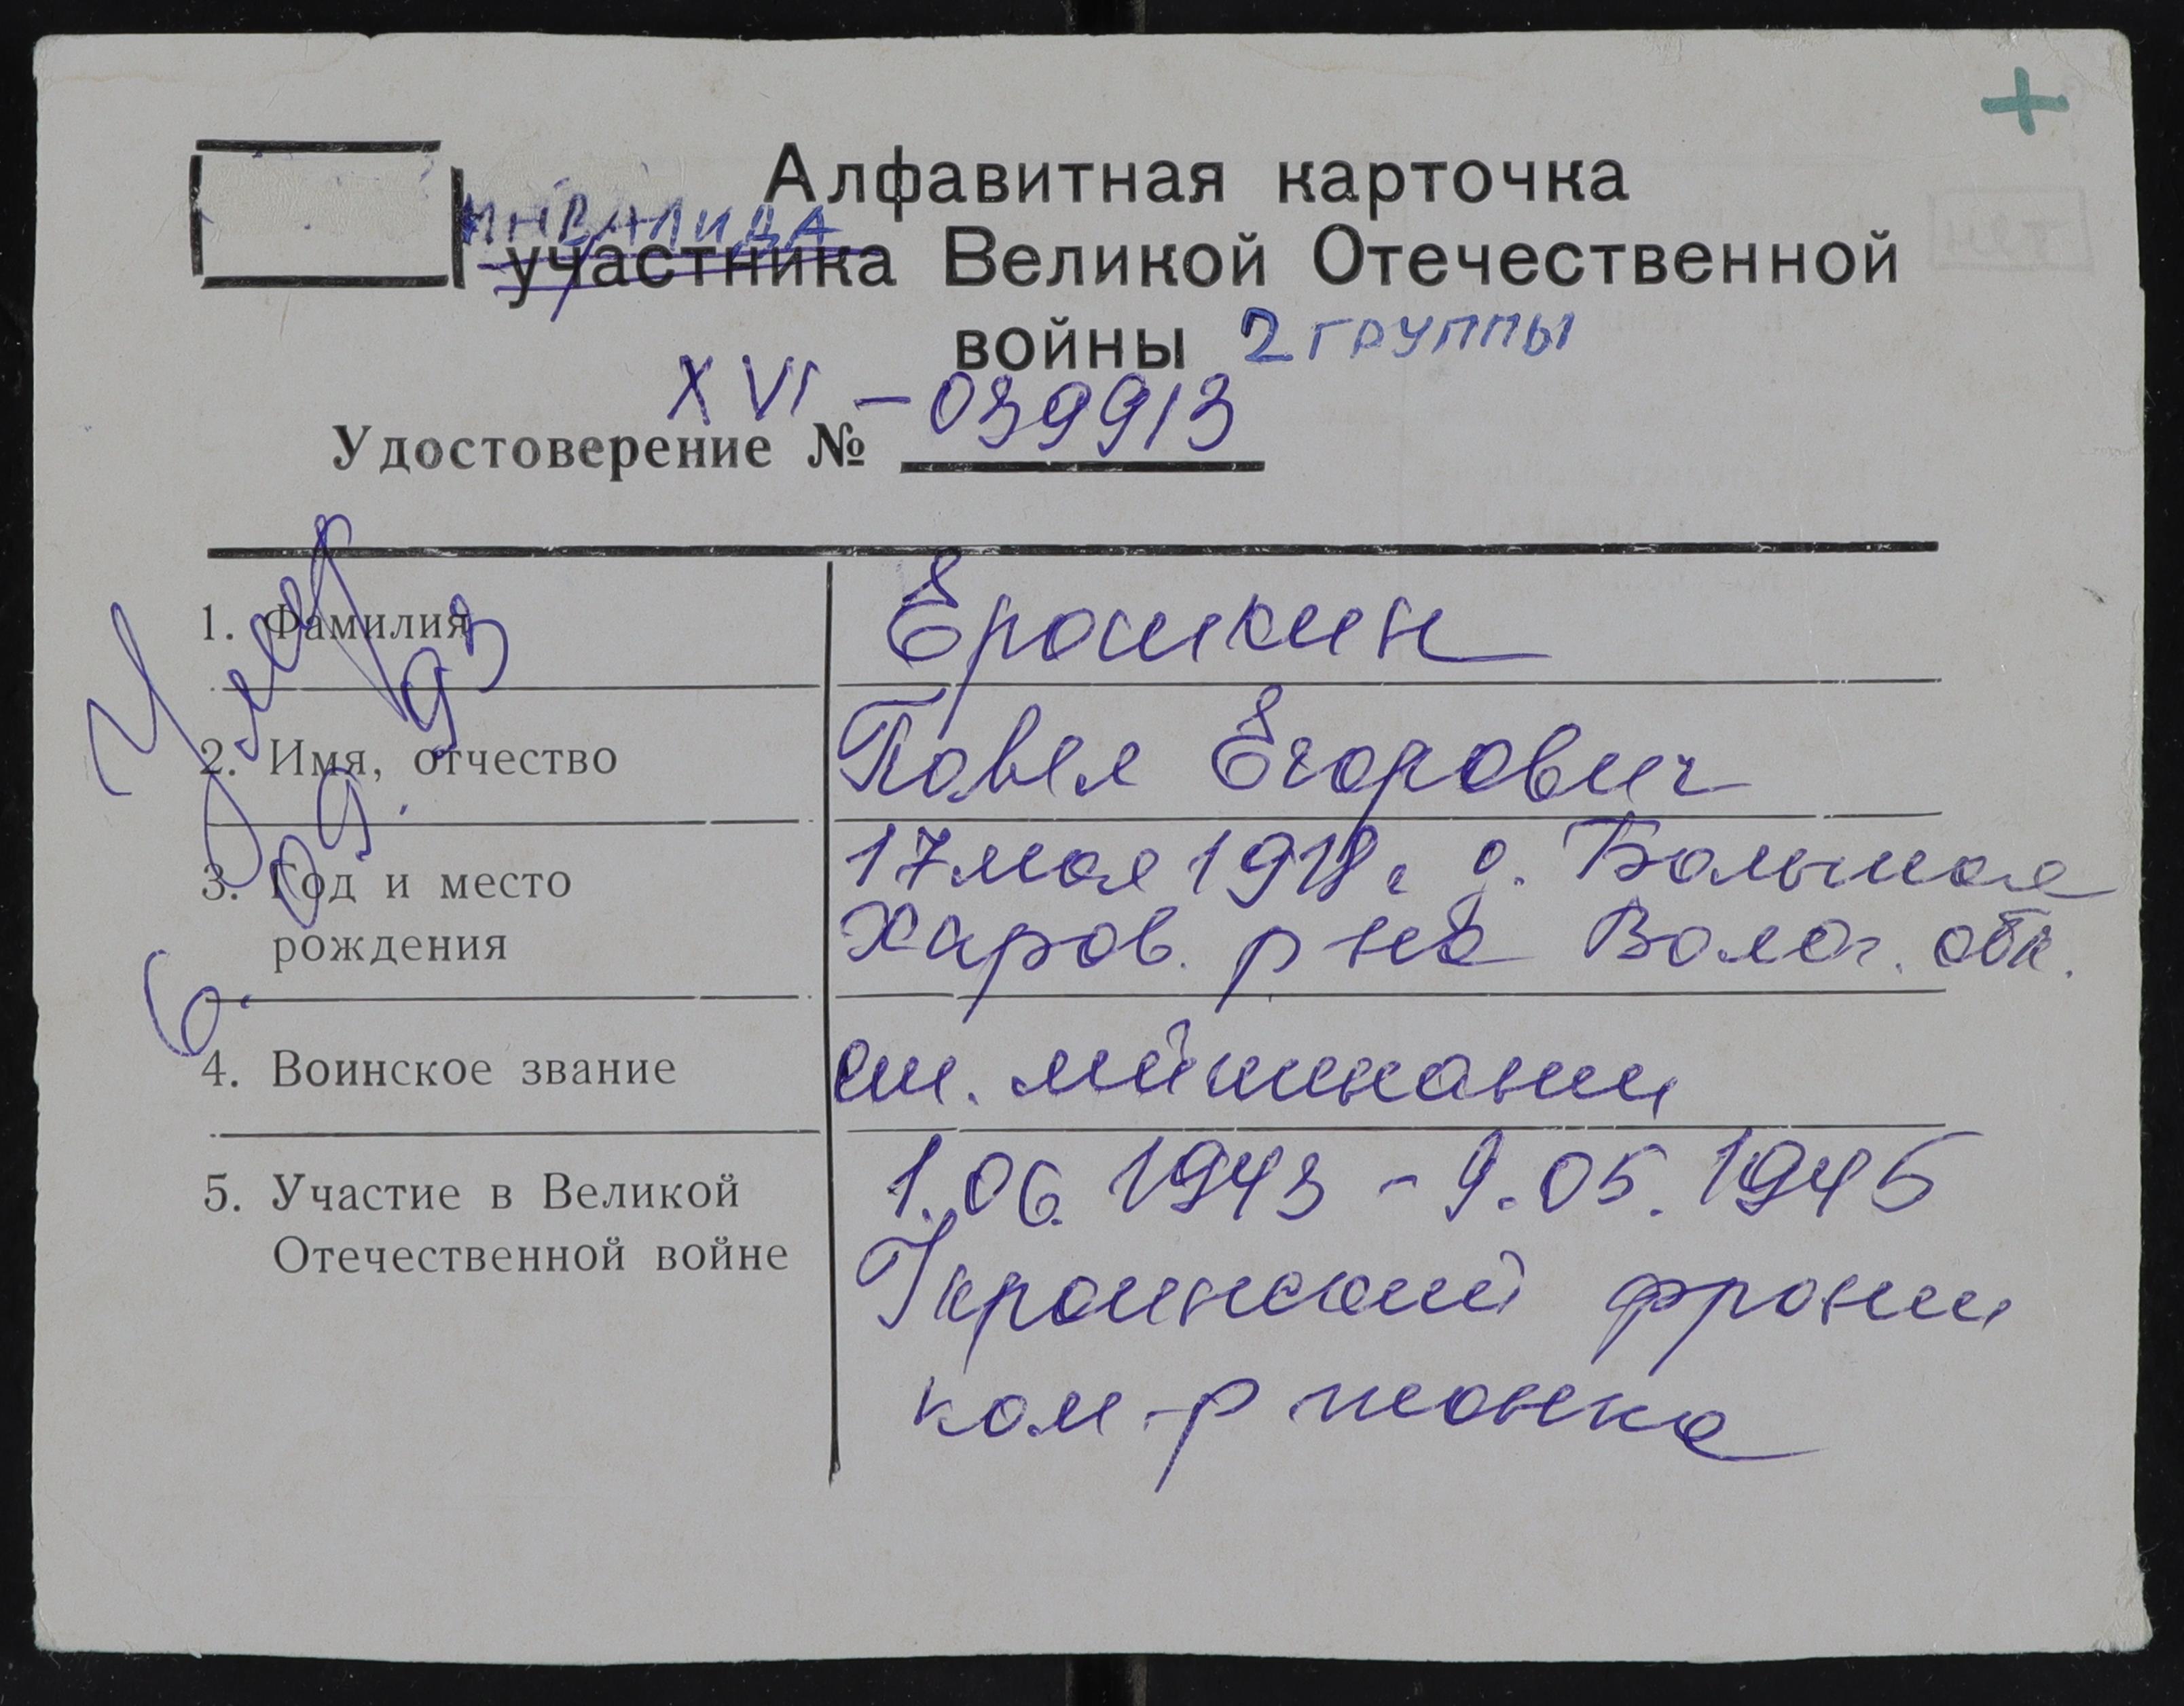 Алфавитная карточка
ИНВАЛИДА
участника Великой Отечественной
войны 2 ГРУППЫ
XVI - 039913
Удостоверение №
Умер
6. 09. 93
1. Фамилия Ерошкин
2. Имя, отчество Павел Егорович
3. Год и место рождения 17 мая 1918 г. д. Большая
Харов. р на Волог. обл.
4. Воинское звание ст. лейтенант
5. Участие в Великой Отечественной войне 1.06.1943 - 9.05.1945
Украинский фронт
ком-р танка